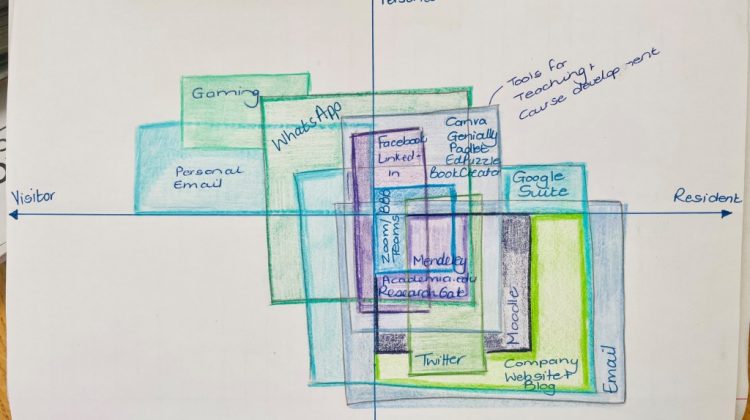 Persona
Gaming
WhatsApp
Tools for
Teaching +
Course development
Canva
Genially
Padlet
Edpuzzle
BookCreator
Facebook
Linked-
in
Personal
Email
Google
Suite
Visitor
Resident
Zoom/BBB
Teams
Mendeley
Academia.edu
ResearchGate
Moodle
Twitter
Company
Website +
Blog
Email